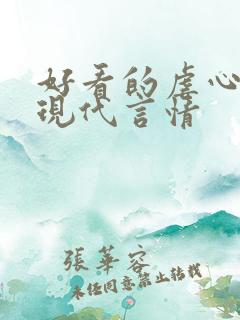 好看的虐心
現代言情
張華容
未經同意禁止轉載